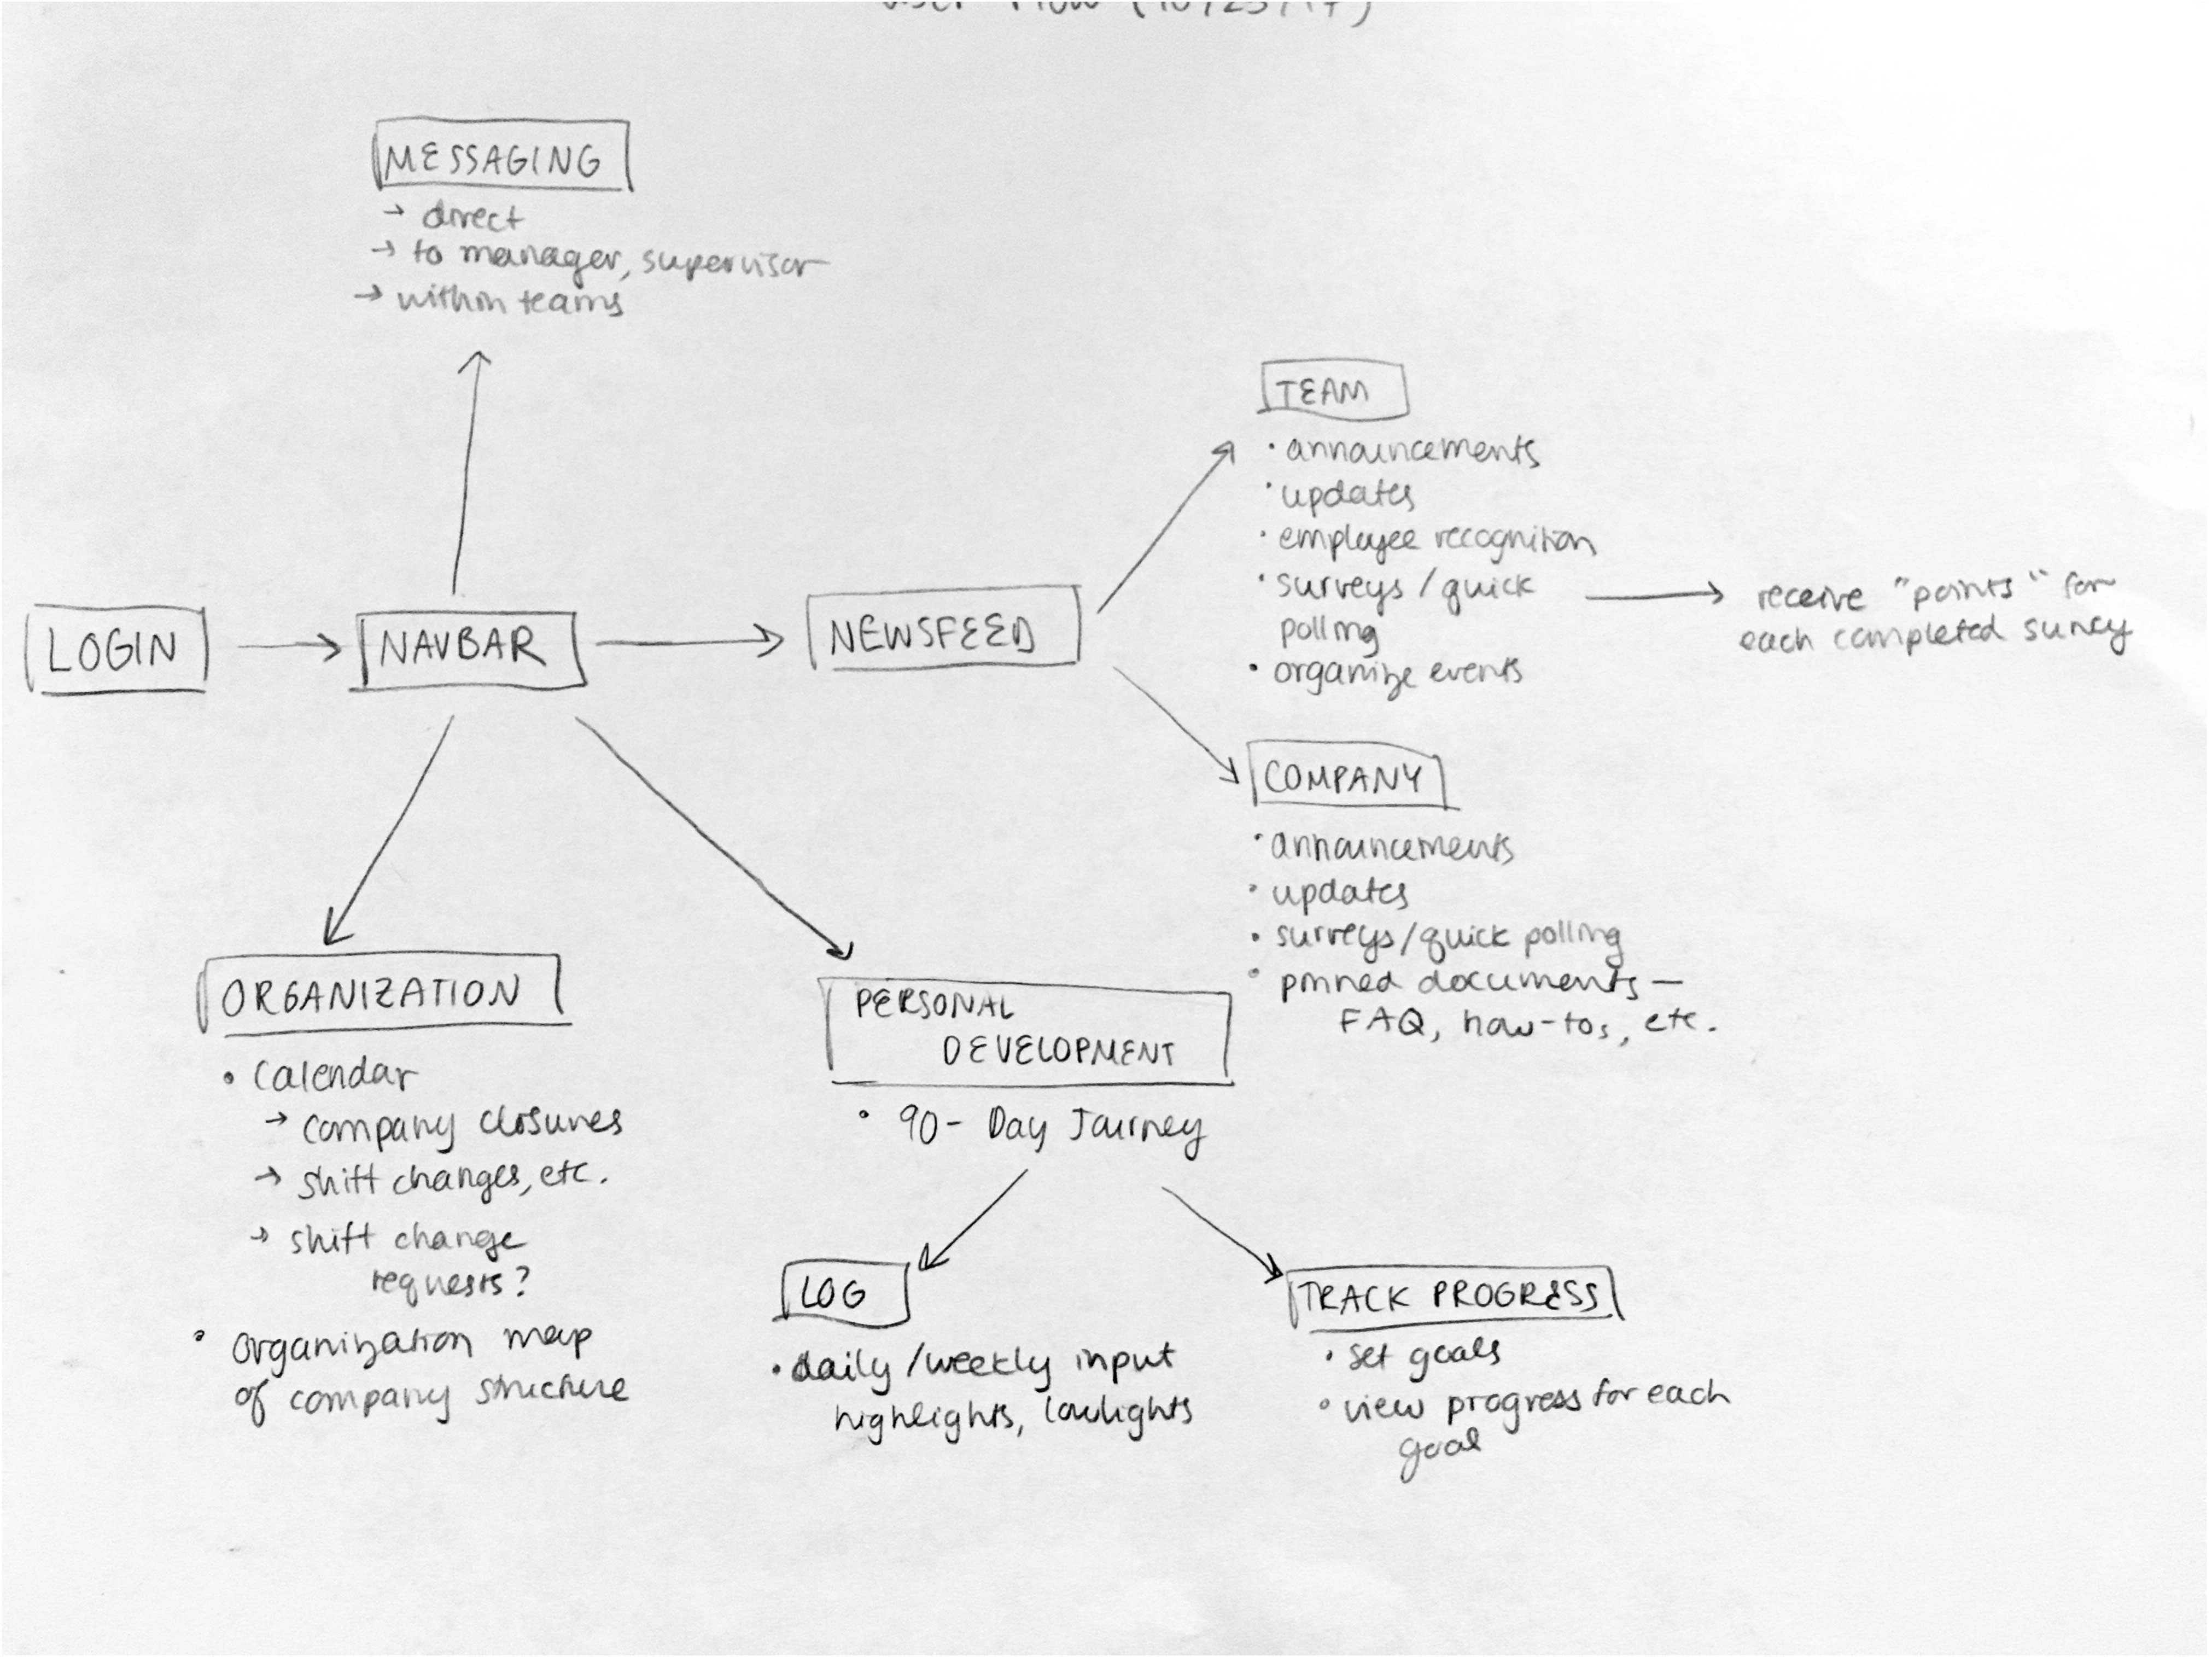 User Flow (10/25/17)
MESSAGING
→ direct
→ to manager, supervisor
→ within teams
LOGIN
NAVBAR
NEWSFEED
TEAM
• announcements
• updates
• employee recognition
• surveys / quick
polling
• organize events
receive "points" for
each completed survey
COMPANY
• announcements
• updates
• surveys/quick polling
• pinned documents —
FAQ, how-tos, etc.
ORGANIZATION
• Calendar
→ company closures
→ shift changes, etc.
→ shift change
requests?
• organization map
of company structure
PERSONAL
DEVELOPMENT
• 90-Day Journey
LOG
• daily/weekly input
highlights, lowlights
TRACK PROGRESS
• set goals
• view progress for each
goal